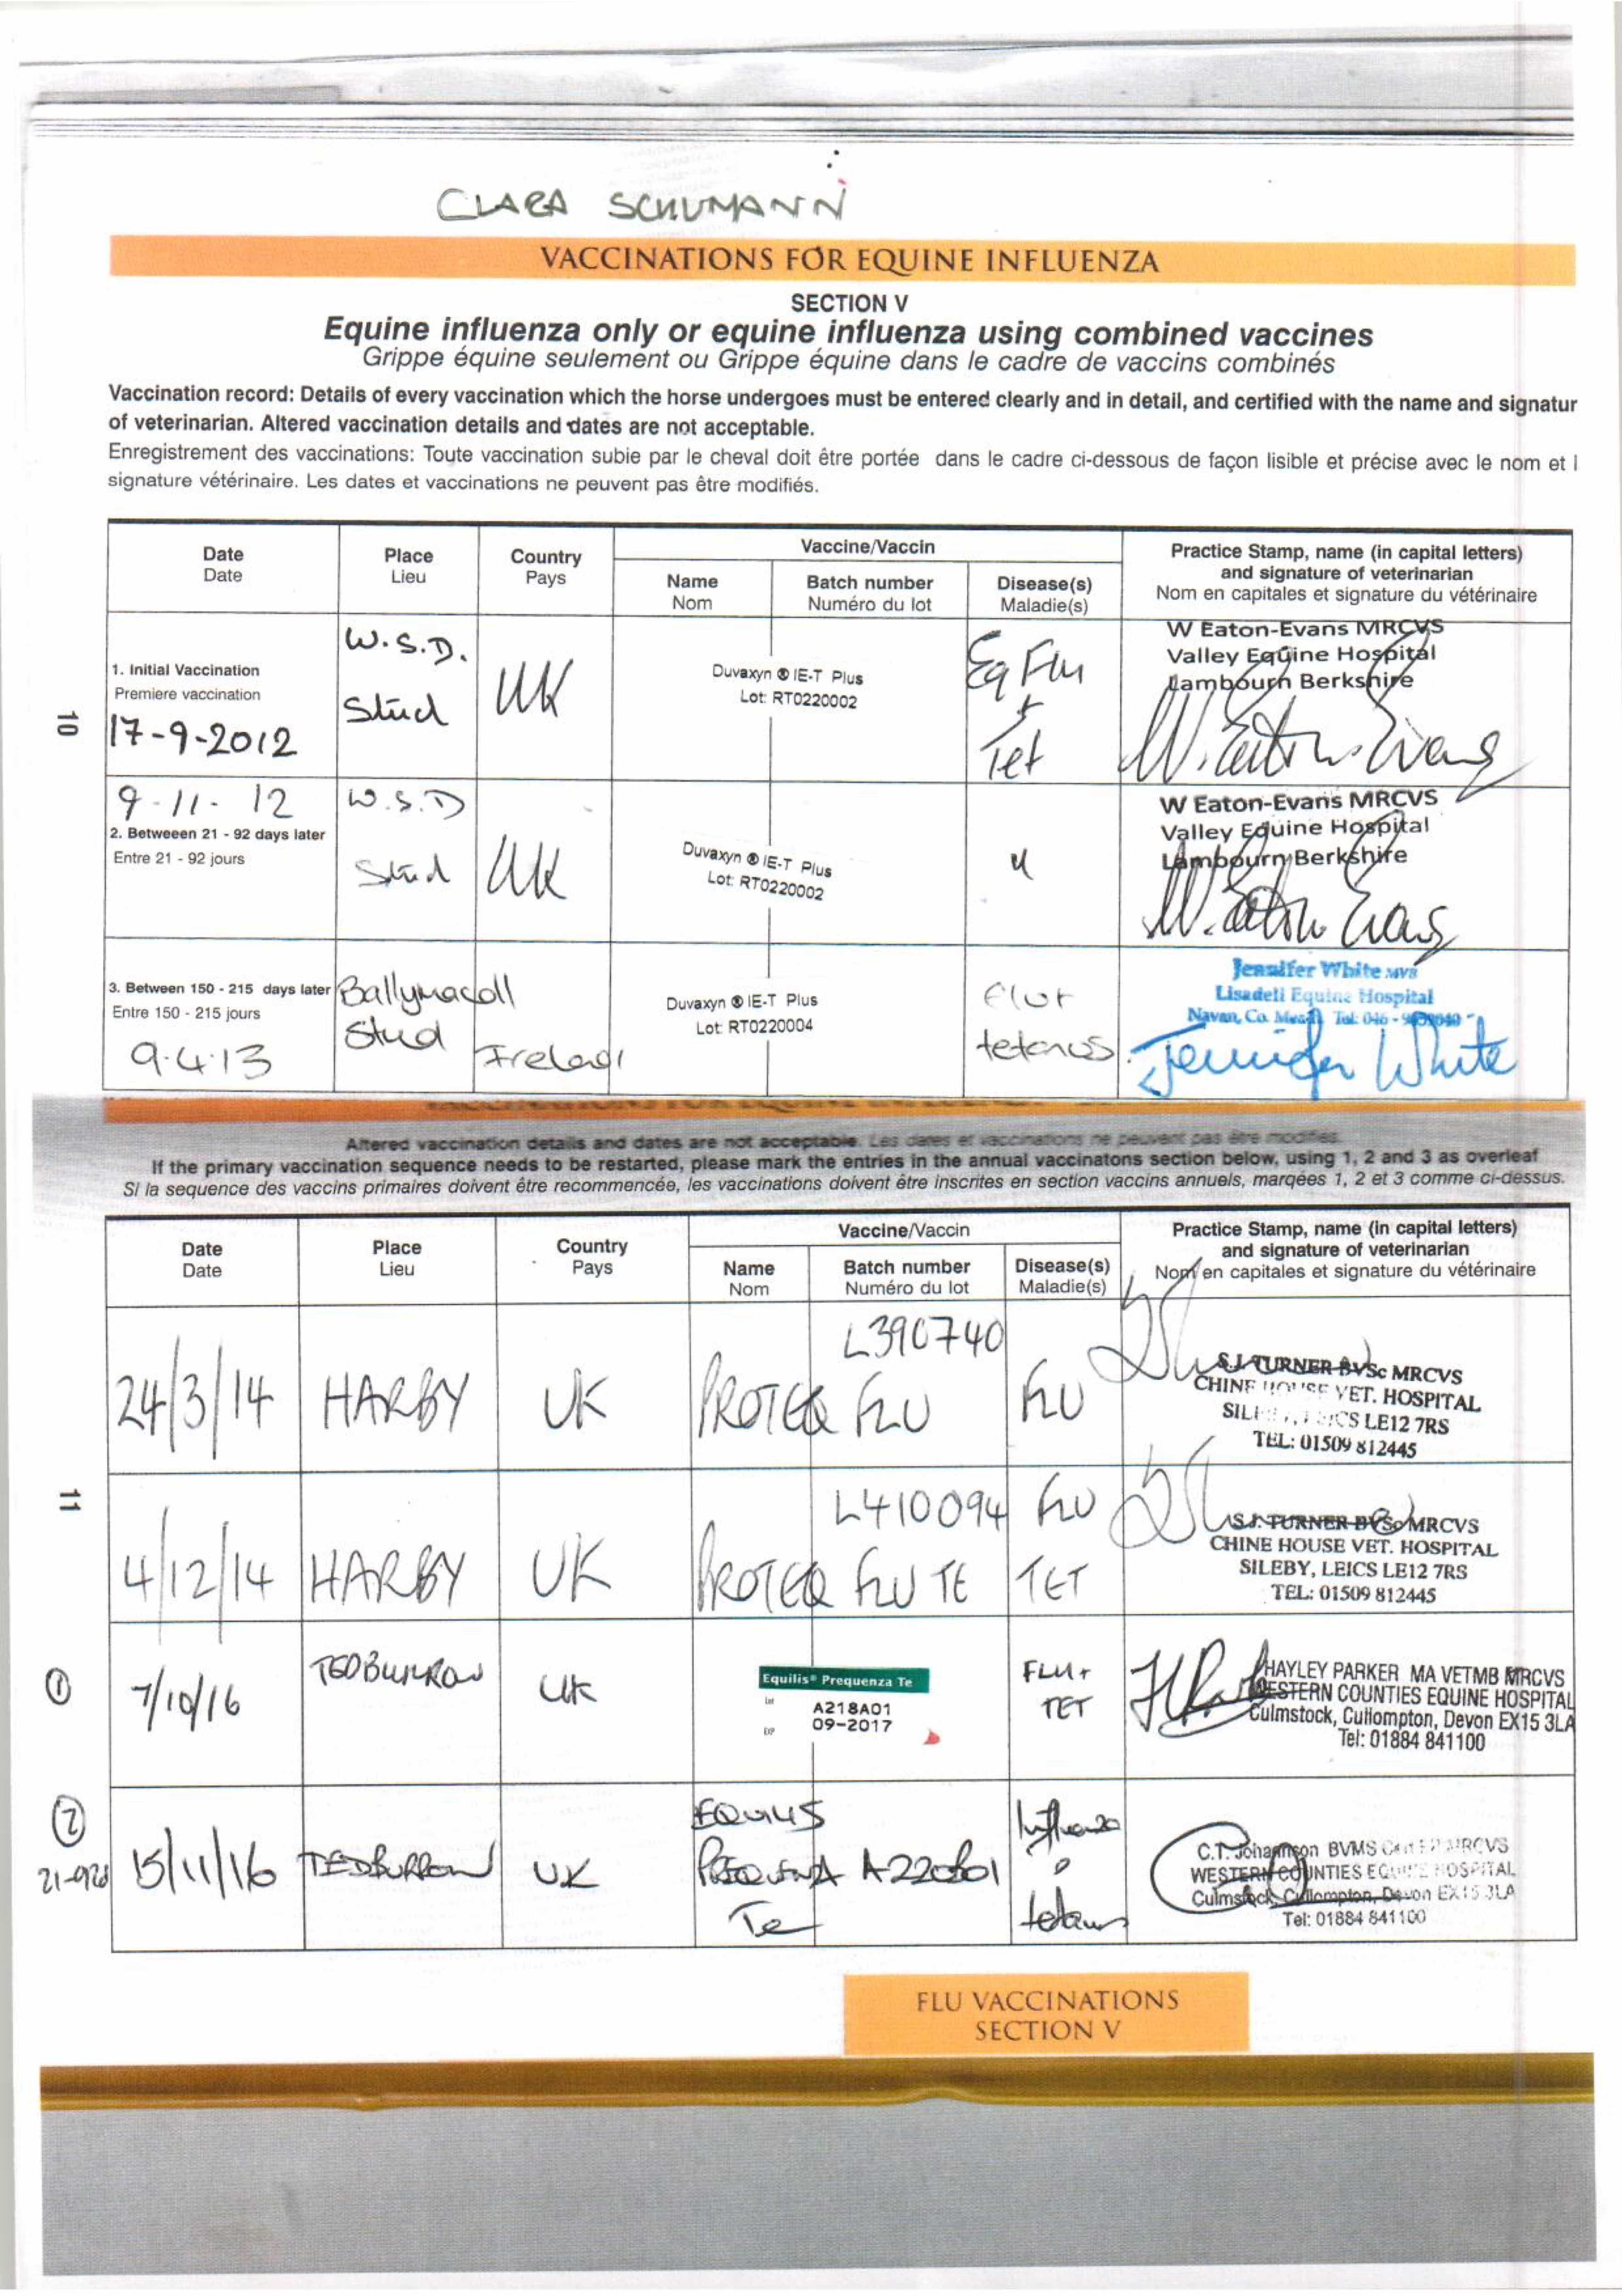 CLARA SCHUMANN
VACCINATIONS FOR EQUINE INFLUENZA
SECTION V
Equine influenza only or equine influenza using combined vaccines
Grippe équine seulement ou Grippe équine dans le cadre de vaccins combinés
Vaccination record: Details of every vaccination which the horse undergoes must be entered clearly and in detail, and certified with the name and signatur
of veterinarian. Altered vaccination details and dates are not acceptable.
Enregistrement des vaccinations: Toute vaccination subie par le cheval doit être portée dans le cadre ci-dessous de façon lisible et précise avec le nom et l
signature vétérinaire. Les dates et vaccinations ne peuvent pas être modifiés.
Date
Date
Place
Lieu
Country
Pays
Vaccine/Vaccin
Name
Nom
Batch number
Numéro du lot
Disease(s)
Maladie(s)
Practice Stamp, name (in capital letters)
and signature of veterinarian
Nom en capitales et signature du vétérinaire
10
1. Initial Vaccination
Premiere vaccination
17-9-2012
W.S.D.
Stud
UK
Duvaxyn ® IE-T Plus
Lot: RT0220002
Eq Flu
+
Tet
W Eaton-Evans MRCVS
Valley Equine Hospital
Lambourn Berkshire
W. Eaton-Evans
9-11-12
2. Betweeen 21 - 92 days later
Entre 21 - 92 jours
W.S.D
Stud
UK
Duvaxyn ® IE-T Plus
Lot: RT0220002
"
W Eaton-Evans MRCVS
Valley Equine Hospital
Lambourn Berkshire
W. Eaton Evans
3. Between 150 - 215 days later
Entre 150 - 215 jours
9.4.13
Ballymacoll
Stud
Ireland
Duvaxyn ® IE-T Plus
Lot: RT0220004
tetanus.
Jennifer White MVB
Lisadell Equine Hospital
Navan, Co. Meath Tel: 046 -
Jennifer White
Altered vaccination details and dates are not acceptable. Les dates et vaccinations ne peuvent pas être modifiés.
If the primary vaccination sequence needs to be restarted, please mark the entries in the annual vaccinatons section below, using 1, 2 and 3 as overleaf
Si la sequence des vaccins primaires doivent être recommencée, les vaccinations doivent être inscrites en section vaccins annuels, marqées 1, 2 et 3 comme ci-dessus.
Date
Date
Place
Lieu
Country
Pays
Vaccine/Vaccin
Name
Nom
Batch number
Numéro du lot
Disease(s)
Maladie(s)
Practice Stamp, name (in capital letters)
and signature of veterinarian
Nom en capitales et signature du vétérinaire
11
24/3/14
HARBY
UK
PROTEQ FLU
L390740
FLU
S.J. TURNER BVSc MRCVS
CHINE HOUSE VET. HOSPITAL
SILEBY, LEICS LE12 7RS
TEL: 01509 812445
4/12/14
HARBY
UK
PROTEQ FLU TE
L410094
FLU
TET
S.J. TURNER BVSc MRCVS
CHINE HOUSE VET. HOSPITAL
SILEBY, LEICS LE12 7RS
TEL: 01509 812445
1
7/10/16
TEDBURROW
UK
Equilis® Prequenza Te
Lot A218A01
EXP 09-2017
FLU +
TET
HAYLEY PARKER MA VETMB MRCVS
WESTERN COUNTIES EQUINE HOSPITAL
Culmstock, Cullompton, Devon EX15 3LA
Tel: 01884 841100
2
21-92d
15/11/16
TEDBURROW
UK
EQUILIS
PREQUENZA
Te
A220B01
Influenza
tetanus
C.T. Johannson BVMS Cert EP MRCVS
WESTERN COUNTIES EQUINE HOSPITAL
Culmstock, Cullompton, Devon EX15 3LA
Tel: 01884 841100
FLU VACCINATIONS
SECTION V